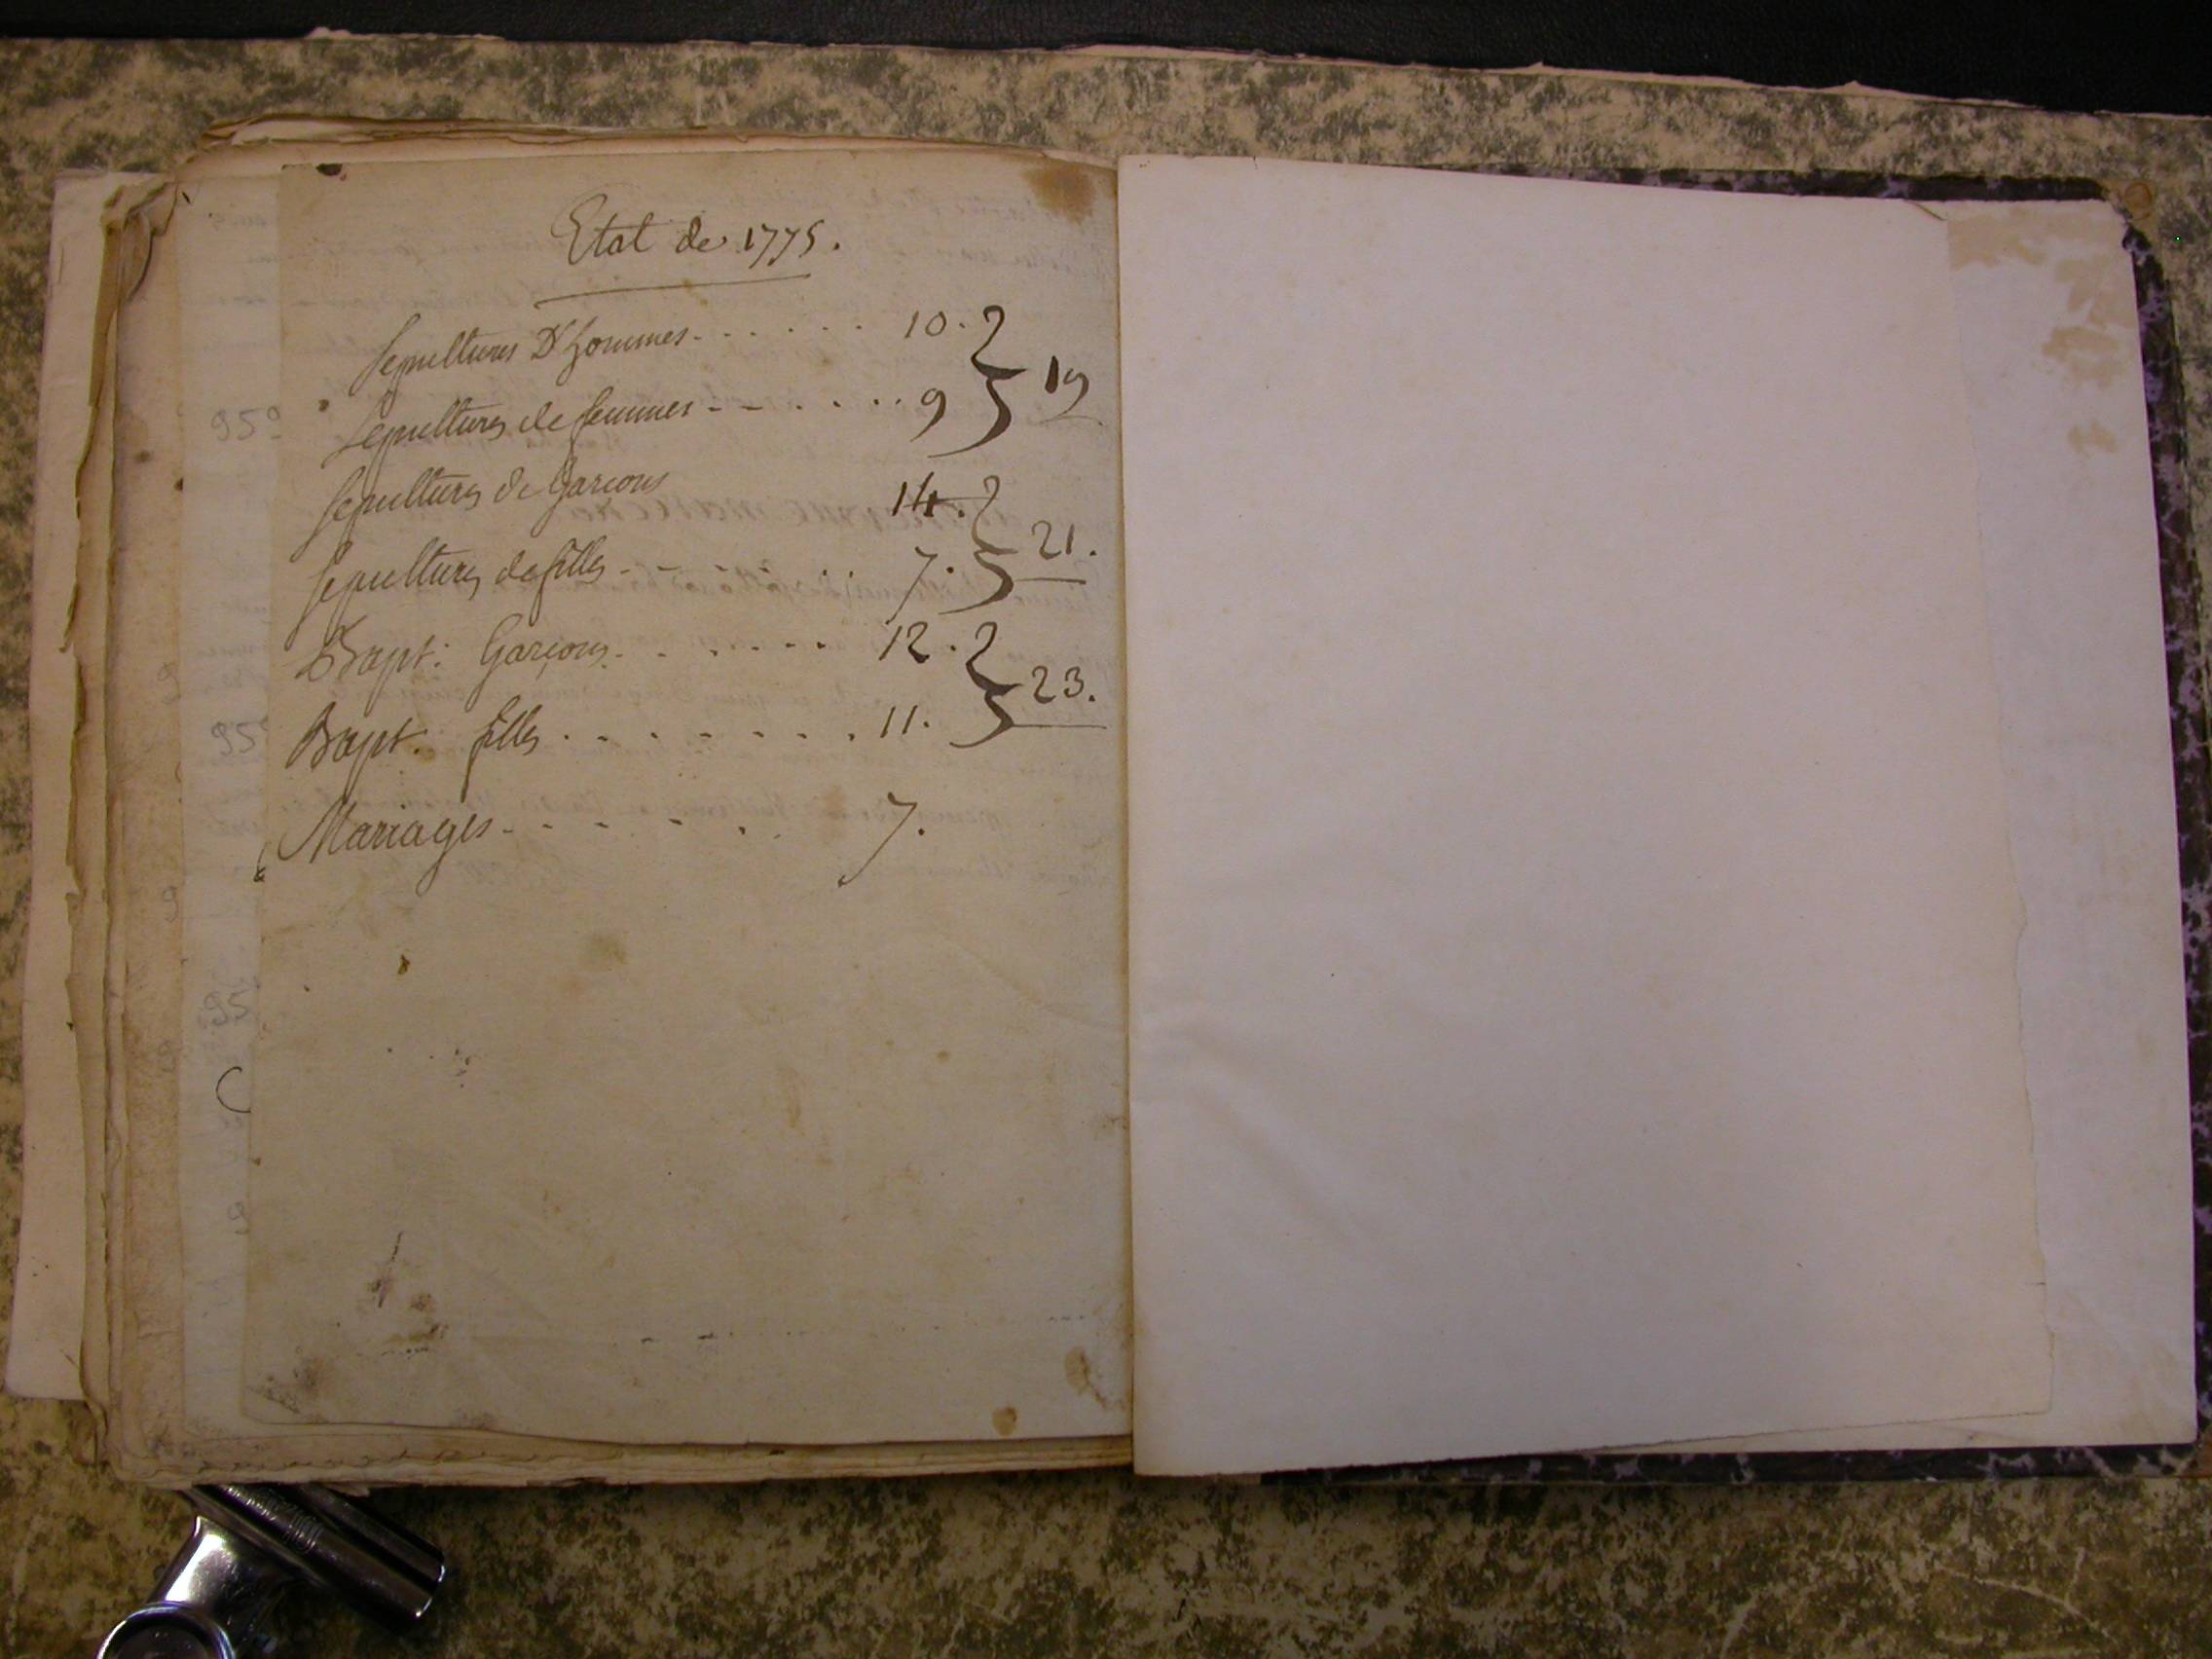 Etat de 1775.
Sepultures D'hommes - . . . . . . 10.
19
Sepultures de femmes - - . . . . . 9
Sepultures de Garcons 14.
21.
Sepultures de filles - - . . . . 7.
Bapt: Garçons. . . . . . . 12.
23.
Bapt. filles . . . . . . . . 11.
Mariages - . - - . - . . 7.